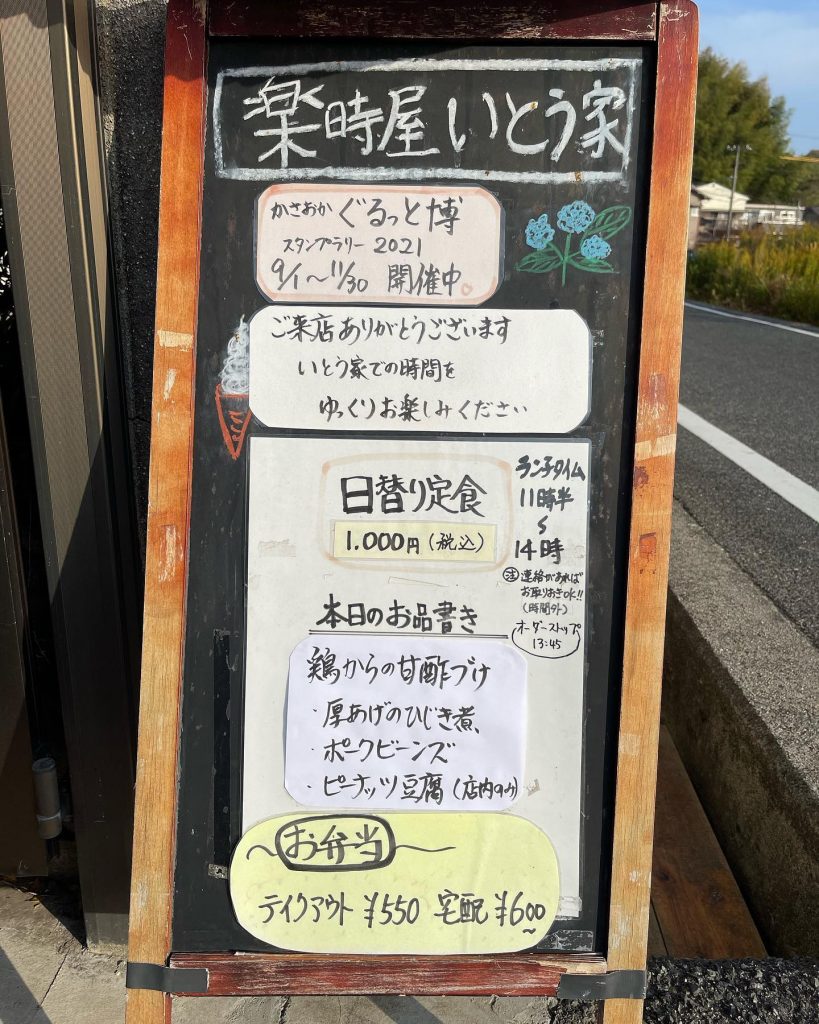 楽時屋いとう家
かさおか ぐるっと博
スタンプラリー 2021
9/1〜11/30 開催中。
ご来店ありがとうございます
いとう家での時間を
ゆっくりお楽しみください
日替り定食
1.000円(税込)
ランチタイム
11時半
〜
14時
注 連絡があれば
お取りおきOK!!
(時間外)
オーダーストップ
13:45
本日のお品書き
鶏からの甘酢づけ
・厚あげのひじき煮、
・ポークビーンズ
・ピーナッツ豆腐(店内のみ)
〜お弁当〜
テイクアウト ¥550 宅配 ¥600〜